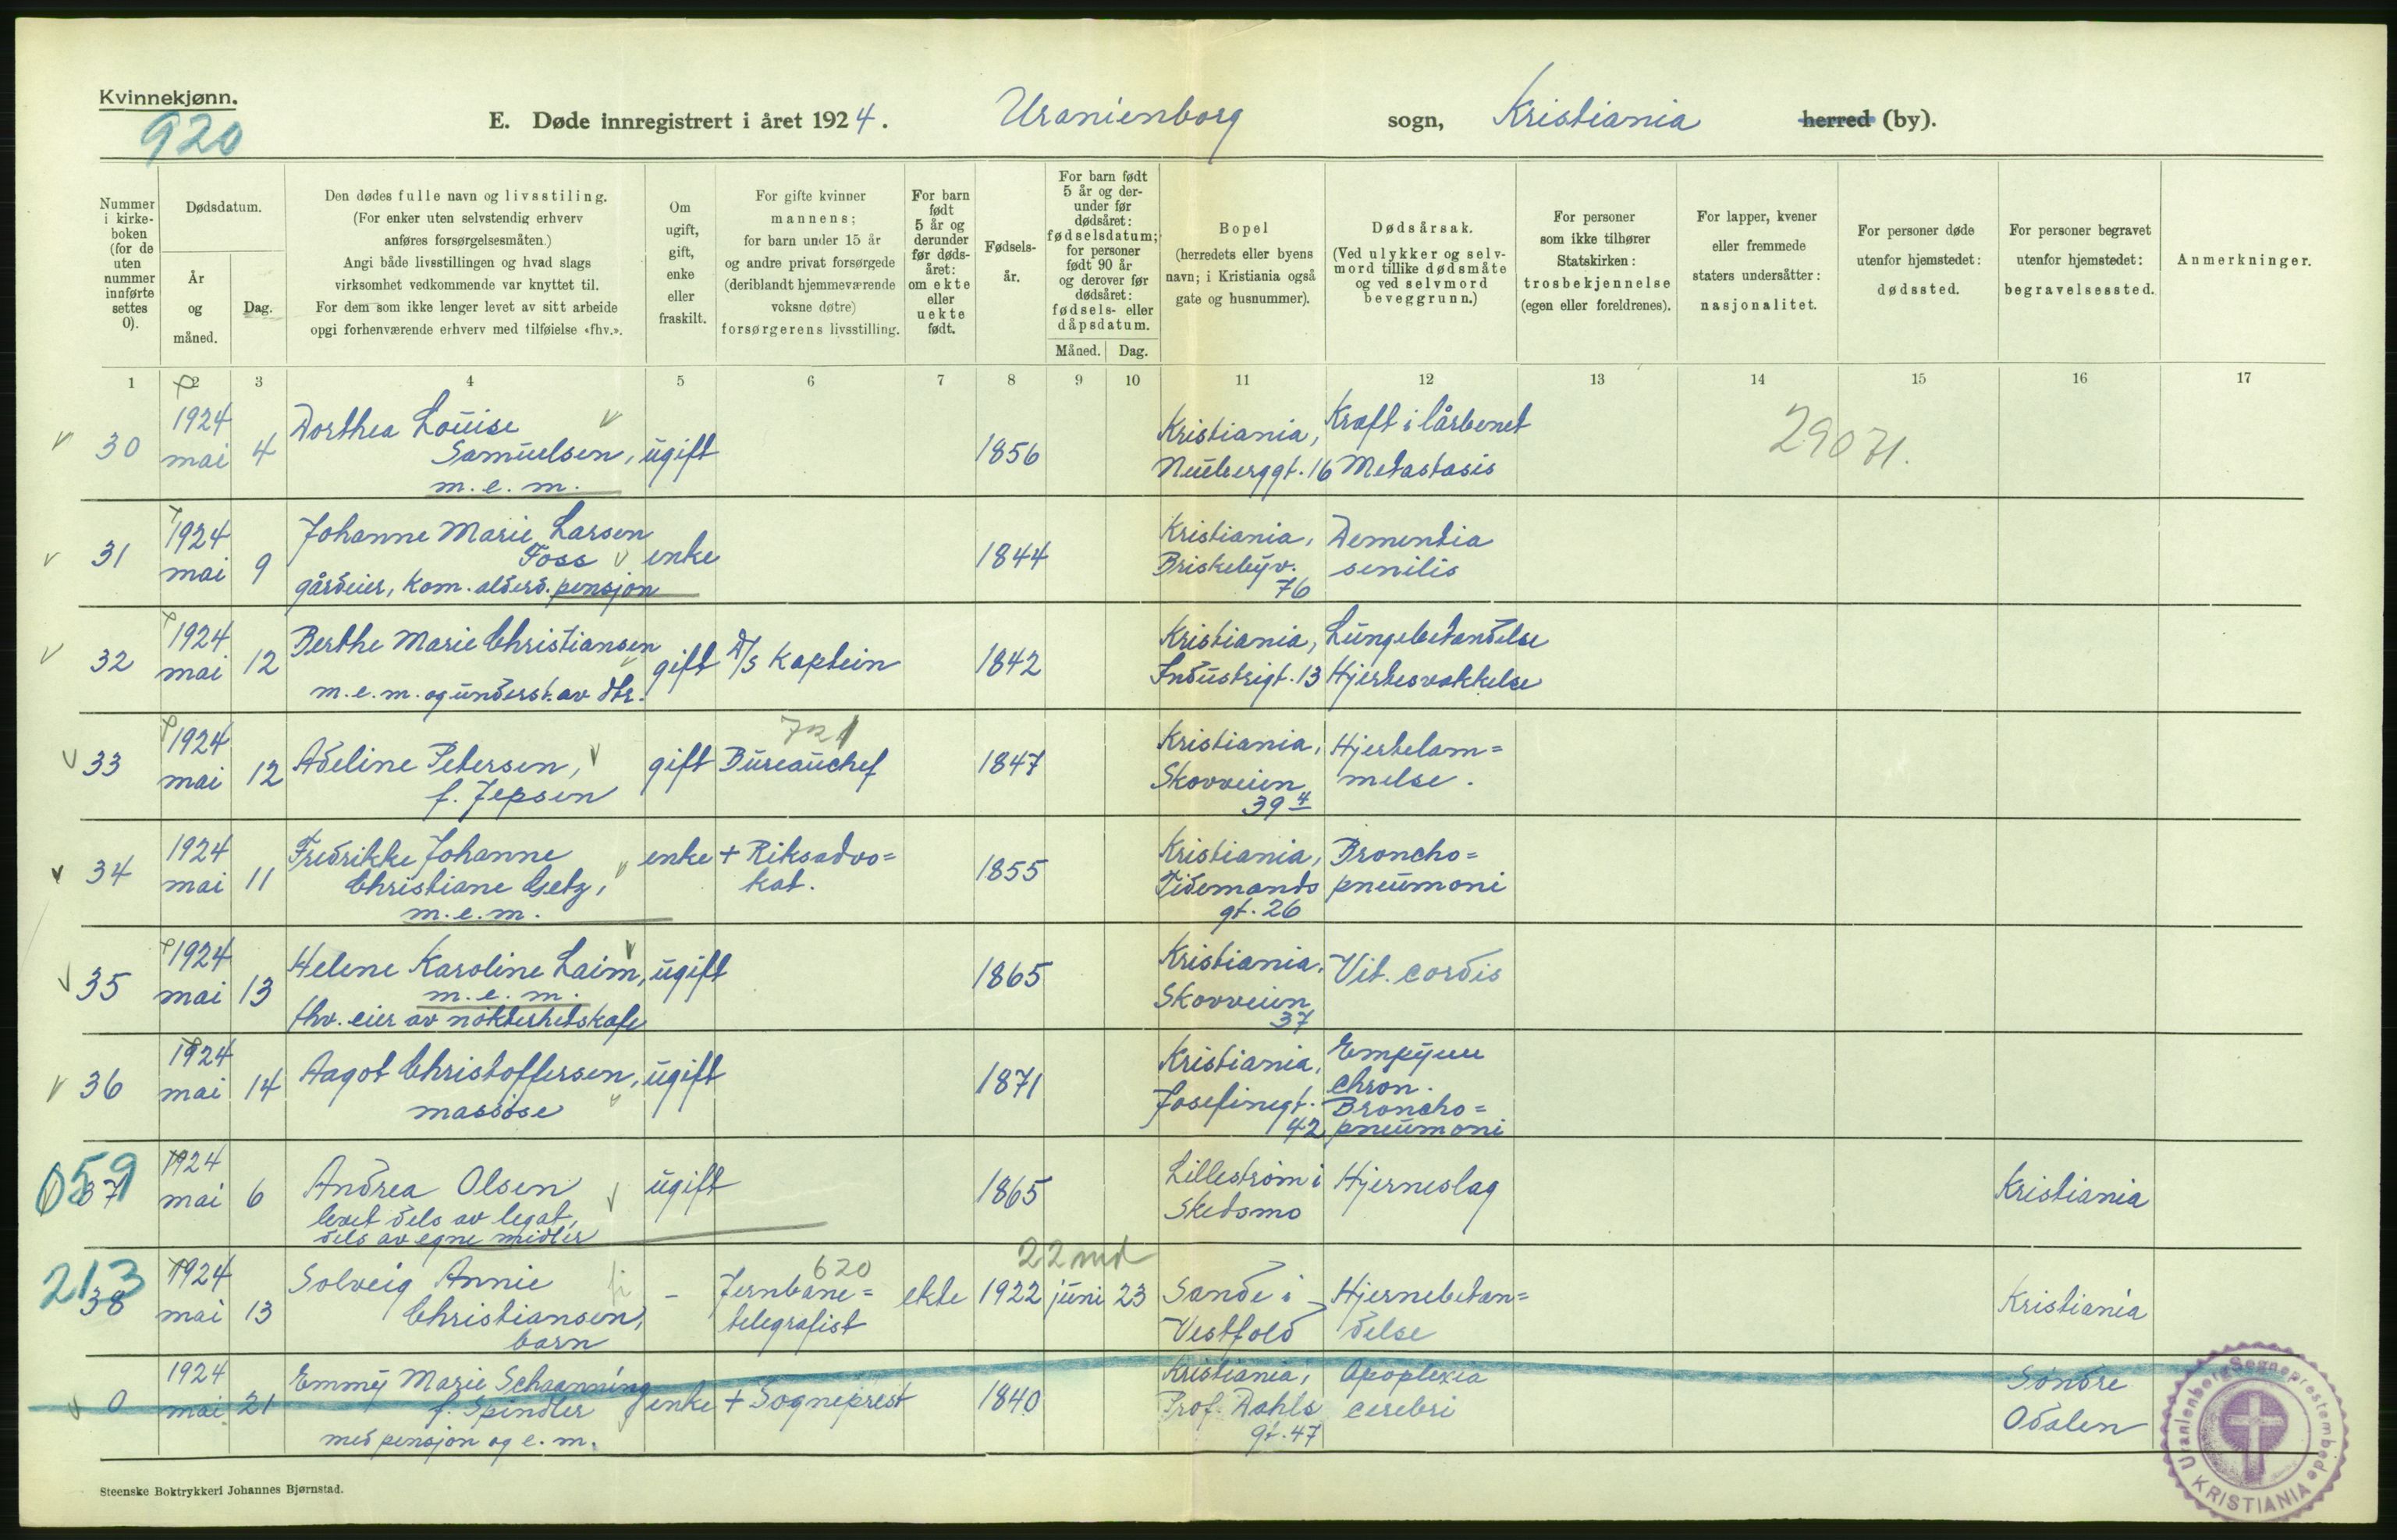 Kvinnekjønn.
920
E. Døde innregistrert i året 1924. Uranienborg sogn, Kristiania herred (by).
Nummer i kirke-boken (for de uten nummer innførte settes 0).
Dødsdatum.
År og måned.
Dag.
Den dødes fulle navn og livsstiling.
(For enker uten selvstendig erhverv
anføres forsørgelsesmåten.)
Angi både livsstillingen og hvad slags
virksomhet vedkommende var knyttet til.
For dem som ikke lenger levet av sitt arbeide
opgi forhenværende erhverv med tilføielse «fhv.».
Om
ugift,
gift,
enke
eller
fraskilt.
For gifte kvinner
mannens;
for barn under 15 år
og andre privat forsørgede
(deriblandt hjemmeværende
voksne døtre)
forsørgerens livsstilling.
For barn
født
5 år og
derunder
før døds-
året:
om ekte
eller
uekte
født.
Fødsels-
år.
For barn født
5 år og der-
under før
dødsåret:
fødselsdatum;
for personer
født 90 år
og derover før
dødsåret:
fødsels- eller
dåpsdatum.
Måned. Dag.
Bopel
(herredets eller byens
navn; i Kristiania også
gate og husnummer).
Dødsårsak.
(Ved ulykker og selv-
mord tillike dødsmåte
og ved selvmord
beveggrunn.)
For personer
som ikke tilhører
Statskirken:
trosbekjennelse
(egen eller foreldrenes).
For lapper, kvener
eller fremmede
staters undersåtter:
nasjonalitet.
For personer døde
utenfor hjemstedet:
dødssted.
For personer begravet
utenfor hjemstedet:
begravelsessted.
Anmerkninger.
1 2 3 4 5 6 7 8 9 10 11 12 13 14 15 16 17
30 1924 mai 4
Dorthea Louise
Samuelsen,
m.e.m.
ugift 1856
Kristiania,
Neuberggt. 16
Kræft i lårbenet
Metastasis
29071.
31 1924 mai 9
Johanne Marie Larsen
Foss
gårdeier, kom. alderd. pensjon
enke 1844
Kristiania,
Briskebyv.
76
Dementia
senilis
32 1924 mai 12
Berthe Marie Christiansen
m.e.m. og underst. av dtr.
gift D/S Kaptein 1842
Kristiania,
Industrigt. 13
Lungebetændelse
Hjertesvakkelse
33 1924 mai 12
Adeline Petersen,
f. Jepsen
gift
721
Bureauchef 1847
Kristiania,
Skovveien
39 4
Hjertelam=
melse.
34 1924 mai 11
Fredrikke Johanne
Christiane Getz,
m.e.m.
enke + Riksadvo=
kat.
1855
Kristiania,
Tidemands
gt. 26
Broncho=
pneumoni
35 1924 mai 13
Helene Karoline Laim,
m.e.m.
fhv. eier av nøkterhetskafe
ugift 1865
Kristiania,
Skovveien
37
Vit. cordis
36 1924 mai 14
Aagot Christoffersen,
massøse
ugift 1871
Kristiania,
Josefinegt.
42
Empyem
chron.
Broncho=
pneumoni
059
37 1924 mai 6
Andrea Olsen
levet dels av legat,
dels av egne midler
ugift 1865
Lillestrøm i
Skedsmo
Hjerneslag
Kristiania
213
38 1924 mai 13
Solveig Annie
Christiansen,
barn
-
620
Jernbane=
telegrafist
ekte
22 md
1922 juni 23
Sande i
Vestfold
Hjernebetæn=
delse
Kristiania
0 1924 mai 21
Emmy Marie Schaanning
f. Spindler
med pensjon og e.m.
enke + Sogneprest 1840
Kristiania,
Prof. Dahls
gt. 47
Apoplexia
cerebri
Søndre
Odalen
Uranienborg Sogneprestembede
KRISTIANIA
Steenske Boktrykkeri Johannes Bjørnstad.